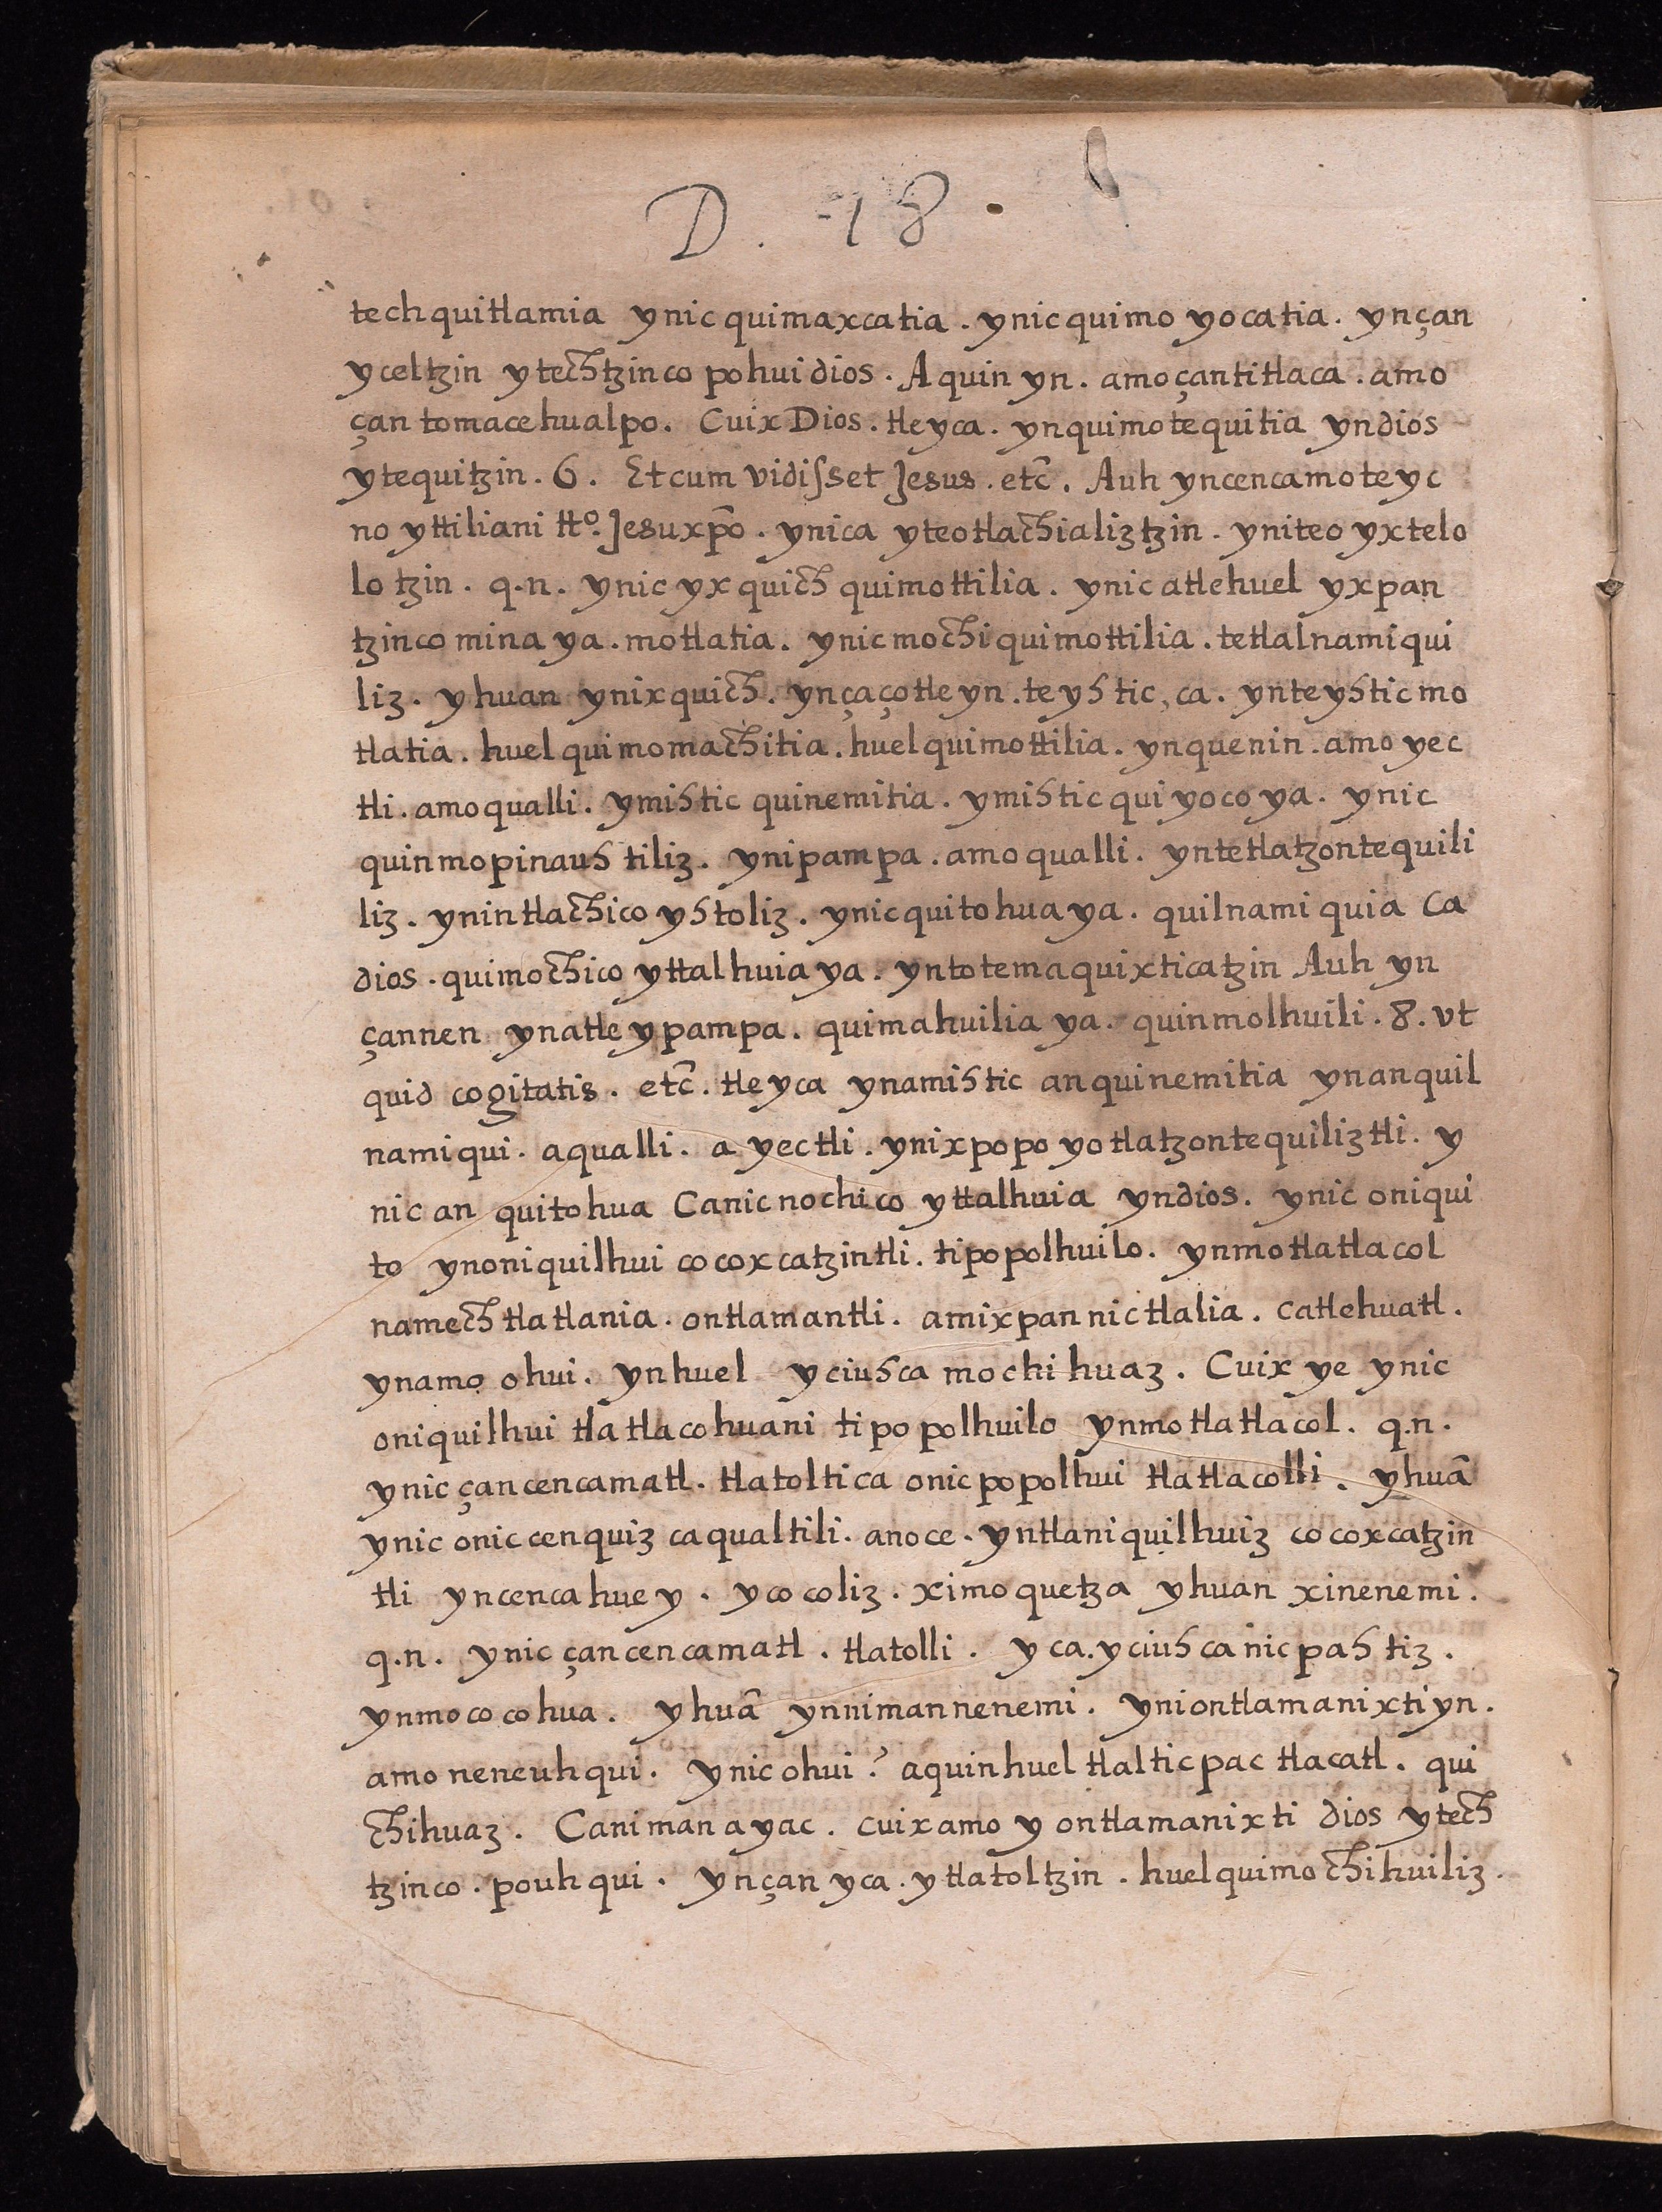 D. 18.
techquitlamia ynic quimaxcatia. ynic quimo yocatia. ynçan
yceltzin ytechtzinco pohui dios. Aquin yn. amo çantitlaca. amo
çan tomacehualpo. Cuix Dios. tleyca. ynquimotequitia yndios
ytequitzin. 6. Et cum vidisset Jesus. etc̃. Auh yncencamoteyc
no yttiliani tt.º Jesuxp̃o. ynica yteotlachializtzin. yniteo yxtelo
lo tzin. q.n. ynic yxquich quimottilia. ynic atlehuel yxpan
tzinco mina ya. motlatia. ynic mochi quimottilia. tetlalnamiqui
liz. yhuan ynixquich. ynçaçotleyn. teyhtic, ca. ynteyhtic mo
tlatia. huel quimomachitia. huel quimottilia. ynquenin. amo yec
tli. amo qualli. ymihtic quinemitia. ymihtic qui yoco ya. ynic
quinmopinauhtiliz. ynipampa. amo qualli. yntetlatzontequili
liz. ynintlachico yhtoliz. ynic quitohua ya. quilnamiquia Ca
dios. quimochico yttalhuia ya. yntotemaquixticatzin Auh yn
çannen ynatle ypampa. quimahuilia ya. quinmolhuili. 8. vt
quid cogitatis. etc̃. tleyca ynamihtic anquinemitia ynanquil
namiqui. aqualli. a yectli. ynixpopo yotlatzontequiliztli. y
nic an quitohua Canic nochico yttalhuia yndios. ynic oniqui
to ynoniquilhui cocoxcatzintli. tipopolhuilo. ynmotlatlacol
namech tlatlania. ontlamantli. amixpan nictlalia. catlehuatl.
ynamo ohui. ynhuel yciuhca mochihuaz. Cuix ye ynic
oniquilhui tlatlacohuani tipopolhuilo ynmotlatlacol. q.n.
ynic çancencamatl. tlatoltica onicpopolhui tlatlacolli. yhuã
ynic oniccenquiz caqualtili. anoce. yntlaniquilhuiz cocoxcatzin
tli yncencahuey. ycocoliz. ximoquetza yhuan xinenemi.
q.n. ynic çancencamatl. tlatolli. yca. yciuhcanicpahtiz.
ynmococohua. yhuã ynnimannenemi. yniontlamanixtiyn.
amo neneuhqui. ynic ohui? aquinhuel tlalticpac tlacatl. qui
chihuaz. Caniman ayac. cuixamo yontlamanixti dios ytech
tzinco. pouhqui. ynçan yca. ytlatoltzin. huelquimochihuiliz.